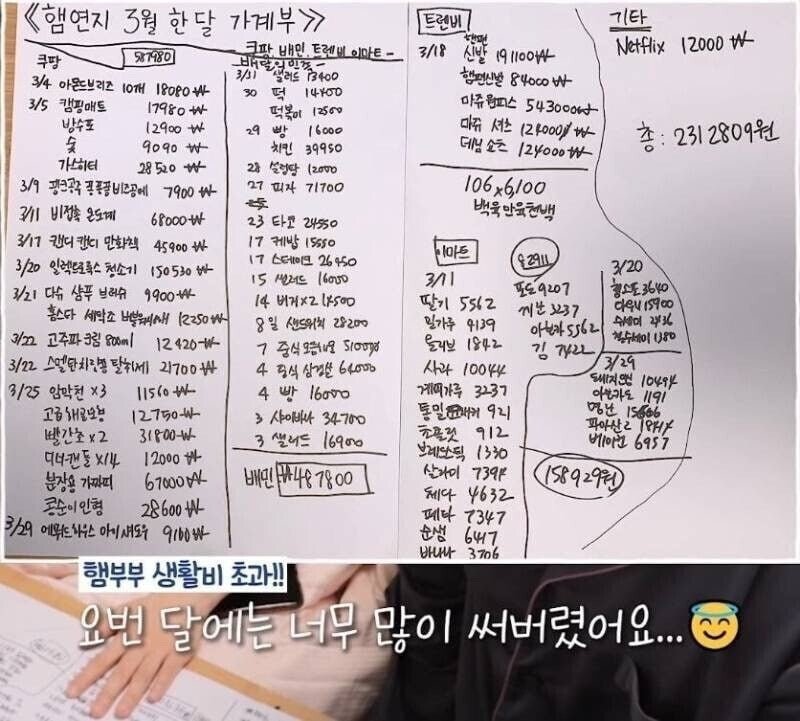 《햄연지 3월 한 달 가계부》
쿠팡 587980
3/4 아몬드브리즈 10개 18080₩
3/5 캠핑매트 17980₩
방수포 12900₩
숯 9090₩
가스히터 28520₩
3/9 7900₩
3/11 비접촉 온도계 68000₩
3/17 캔디 캔디 만화책 45900₩
3/20 일렉트로룩스 청소기 150530₩
3/21 다슈 샴푸 브러쉬 9900₩
홈스타 세탁조 12250₩
3/22 고주파 크림 800ml 12420₩
3/22 탈취제 21700₩
3/25 암막천 ×3 11560₩
12750₩
빨간초 ×2 31800₩
디너캔들 ×14 12000₩
분장용 67000₩
콩순이 인형 28600₩
3/29 에뛰드하우스 아이섀도우 9100₩
쿠팡 배민 트렌비 이마트
배달의민족
3/31 샐러드 13400
30 떡 14400
떡볶이 12500
29 빵 16000
치킨 39950
28 설렁탕 12000
27 피자 71700
23 타코 24550
17 케밥 15550
17 스테이크 26450
15 샐러드 16000
14 버거×2
8일 샌드위치 28200
7 중식
4 삼겹살 64000
4 빵 16000
3 샤이바나 34700
3 샐러드 16900
배민 ₩487800
트렌비
3/18 햄편
신발 191100₩
햄편신발 84000₩
마쥬원피스 543000₩
마쥬 셔츠 124000₩
데님 쇼츠 124000₩
106×6,100
백육만육천백
이마트
3/11
딸기 5562
밀가루 4139
올리브 1842
사과 10044
계피가루 3237
통밀 921
초콜릿 912
브레드스틱 1330
살라미 7394
체다 4632
페타 7347
순샘 6417
바나나 3706
포도 9207
3237
아보카도 5562
김 7422
3/20
3640
15900
수세미 2436
1380
3/29
10494
아보카도 1191
명란
파마산2
베이컨 6957
158929원
기타
Netflix 12000₩
총 : 2312809원
햄부부 생활비 초과!!
요번 달에는 너무 많이 써버렸어요...